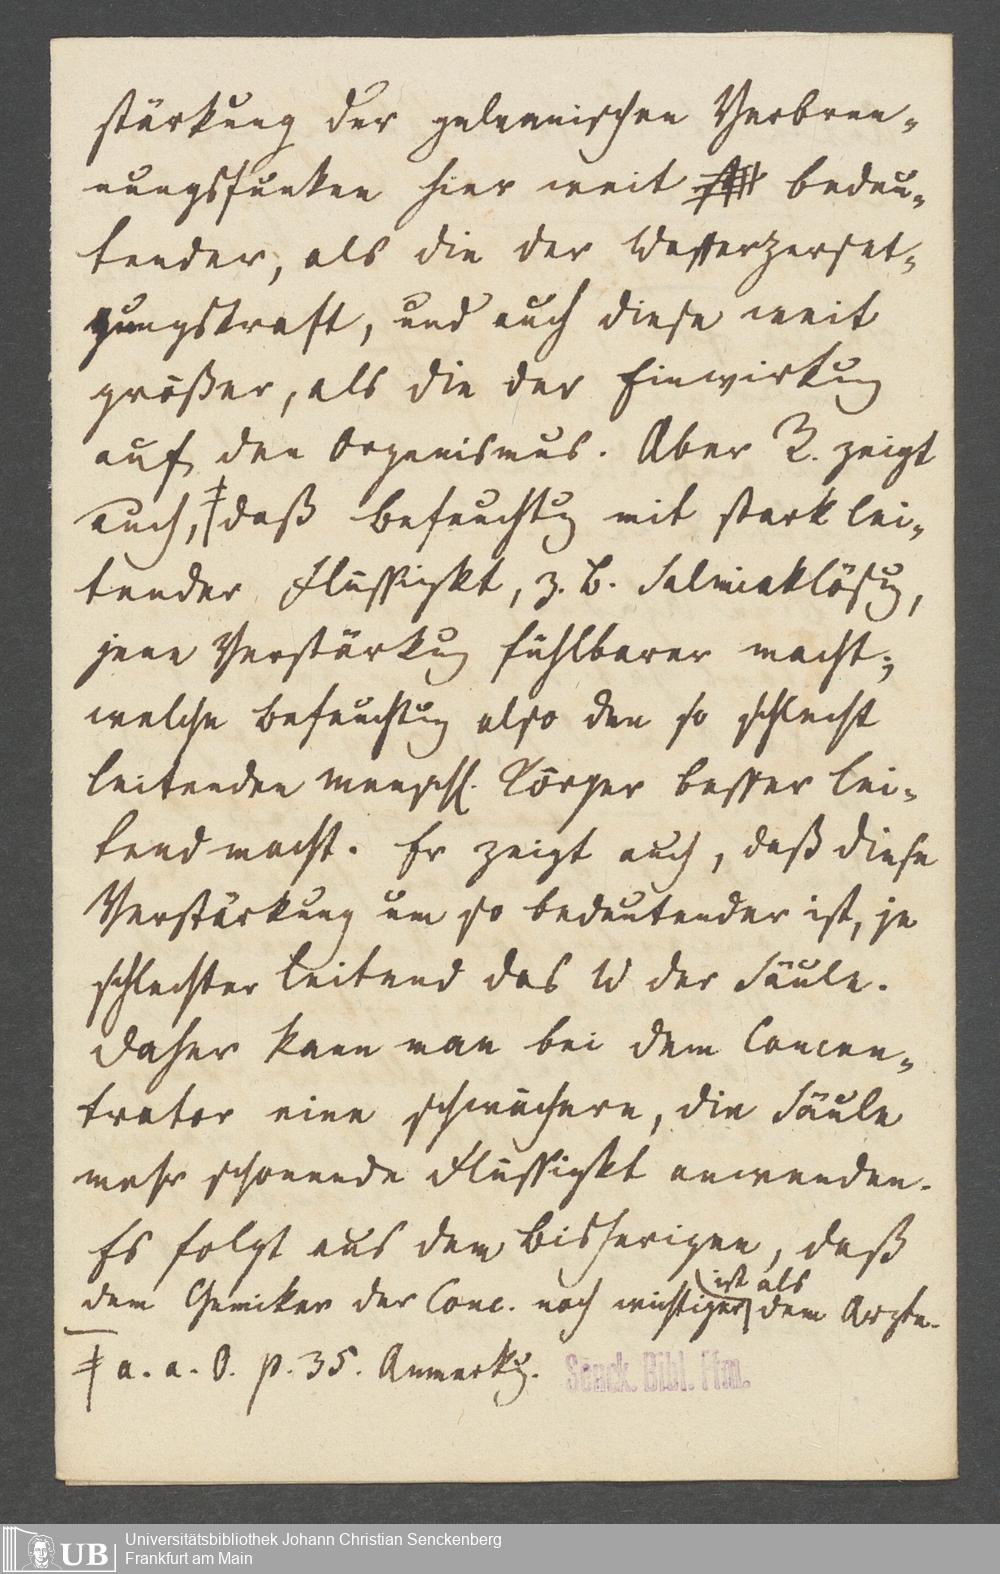 stärkung der galvanischen Verbren-
nungsfunken hier weit bedeu-
tender, als die der Wasserzerset-
zungskraft, und auch diese weit
größer, als die der Einwirkug
auf den Organismus. Aber R. zeigt
auch, ‡ daß Befeuchtug mit stark lei-
tender Flüssigkt, z. B. Salmiaklösug,
jene Verstärkug fühlbarer macht;
welche Befeuchtug also den so schlecht
leitenden menschl. Körper besser lei-
tend macht. Er zeigt auch, daß diese
Verstärkung um so bedeutender ist, je
schlechter leitend das W der Säule.
Daher kann man bei dem Concen-
trator eine schwächere, die Säule
mehr schonende Flüssigkt anwenden.
Es folgt aus dem Bisherigen, daß
ist als
dem Chemiker der Conc. noch wichtiger dem Arzte.
‡ a. a. O. p. 35. Anmerkg.
Senck. Bibl. Ffm.
UB
Universitätsbibliothek Johann Christian Senckenberg
Frankfurt am Main